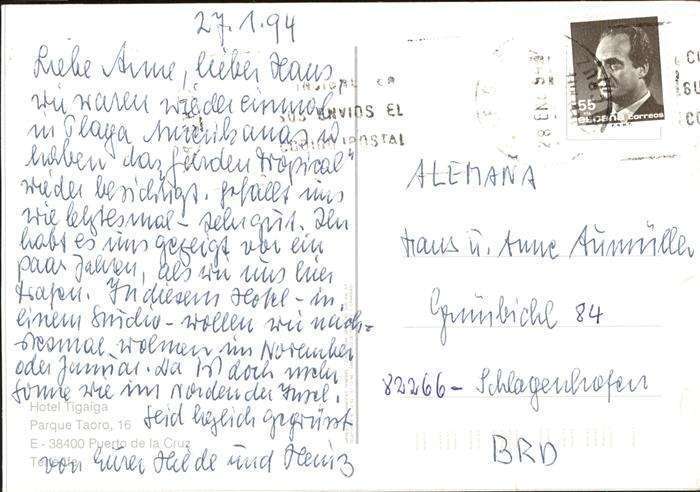 27.1.94
Liebe Anne, lieber Hans
wir waren wieder einmal
in Playa Americanas u.
haben das "Jardin tropical"
wieder besichtigt. Gefällt uns
wie letztesmal - sehr gut. Ihr
habt es uns gezeigt vor ein
paar Jahren, als wir uns hier
trafen. In diesem Hotel - in
einem Studio - wollen wir näch-
stesmal wohnen im November
oder Januar. Da ist doch mehr
Sonne wie im Norden der Insel.
Seid herzlich gegrüsst
von Eurer Hilde und Heinz
Hotel Tigaiga
Parque Taoro, 16
E - 38400 Puerto de la Cruz
SUS ENVIOS EL
CODIGO POSTAL
28 EN
55
ESPAÑA correos
ALEMAÑA
Hans u. Anne Aumüller
Grünbichl 84
82266 - Schlagenhofen
BRD